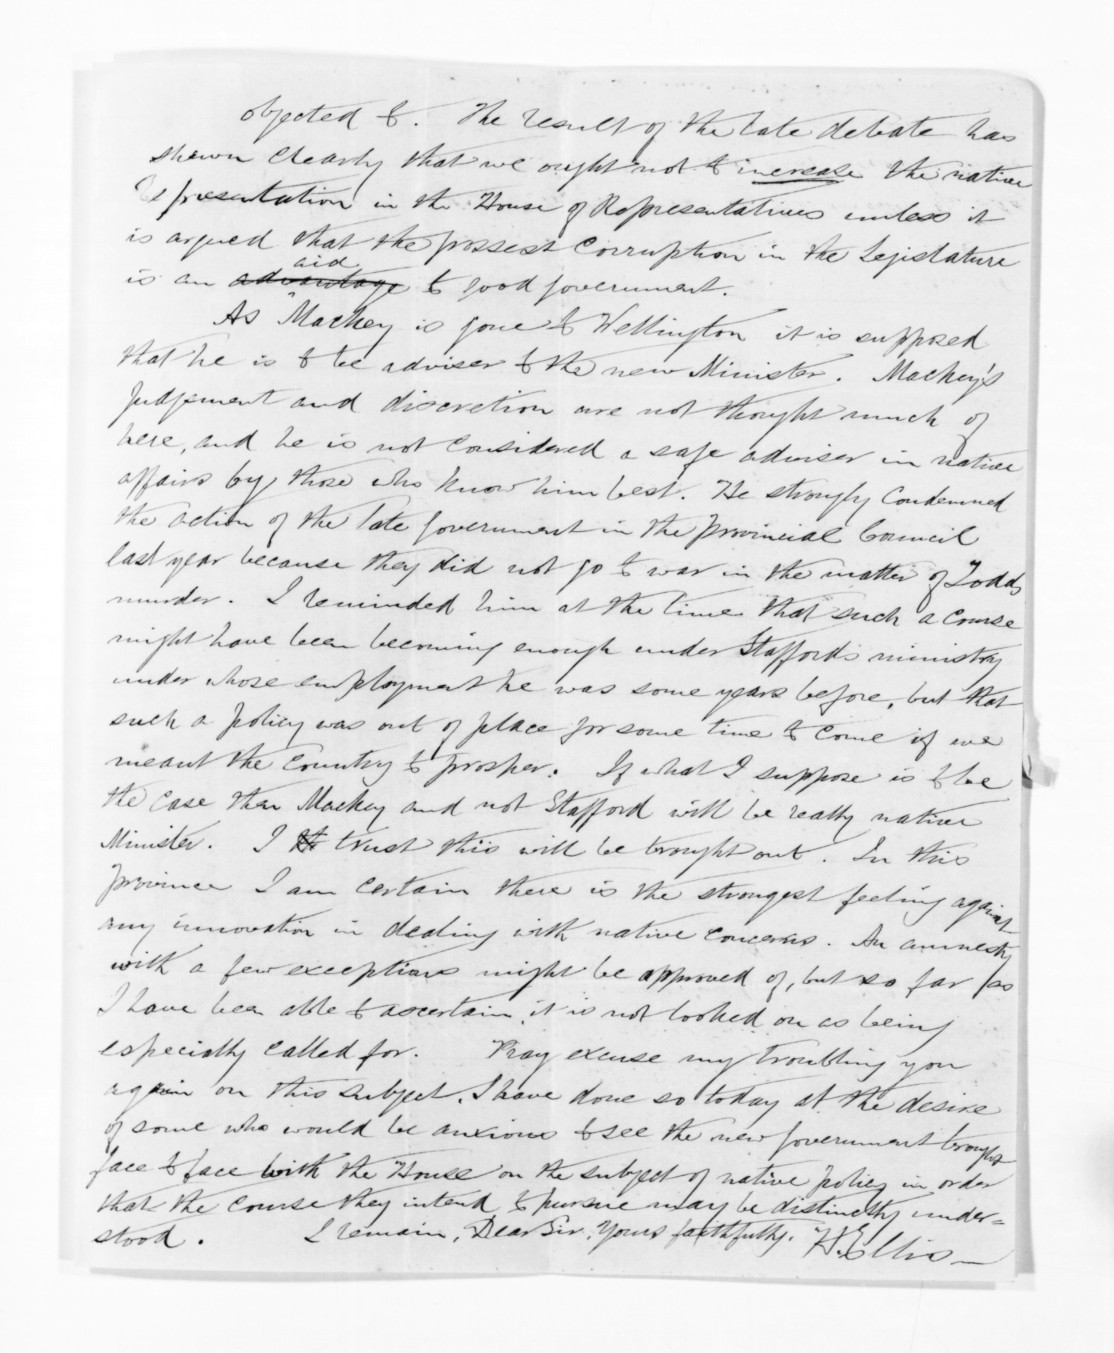 objected to. The result of the late debate has
shewn clearly that we ought not to increase the native
Representation in the House of Representatives unless it
is argued that the grossest Corruption in the Legislature
aid
is an advantage to good government.
As Mackey is gone to Wellington it is supposed
that he is to be adviser to the new Minister. Mackey's
Judgement and discretion are not thought much of
here, and he is not considered a safe adviser in native
affairs by those who know him best. He strongly condemned
the action of the late government in the Provincial Council
last year because they did not go to war in the matter of Todds
murder. I reminded him at the time that such a course
might have been becoming enough under Stafford's ministry
under whose employment he was some years before, but that
such a policy was out of place for some time to come if we
meant the Country to prosper. If what I suppose is to be
the case then Mackey and not Stafford will be really native
Minister. I trust this will be brought out. In this
Province I am certain there is the strongest feeling against
any innovation in dealing with native concerns. An amnesty
with a few exceptions might be approved of, but so far as
I have been able to ascertain, it is not looked on as being
especially called for. Pray excuse my troubling you
again on this subject. I have done so today at the desire
of some who would be anxious to see the new government brought
face to face with the House on the subject of native policy in order
that the course they intend to pursue may be distinctly under=
stood. I remain, Dear Sir, Yours faithfully. H Ellis